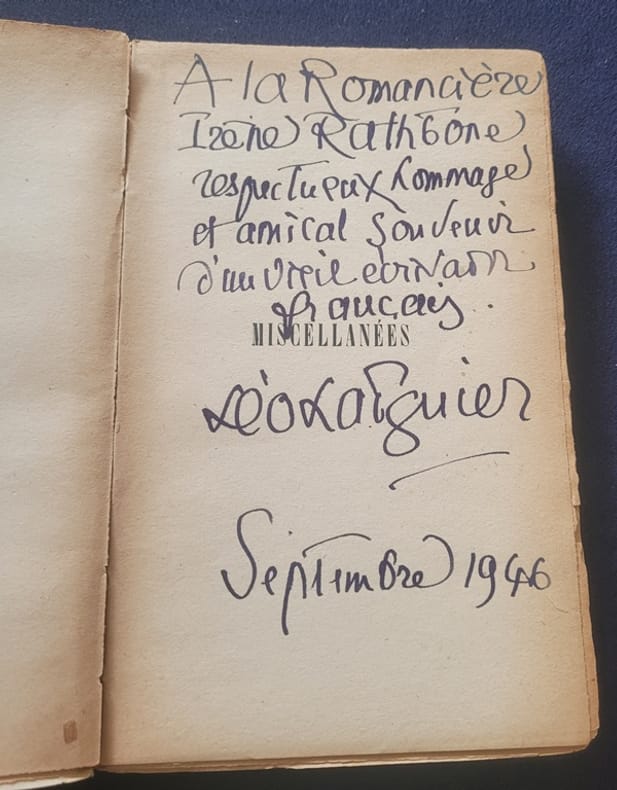 A la Romancière
Irène Rathbone
respectueux hommage
et amical souvenir
d'un vieil écrivain
français.
MISCELLANÉES
Léo Larguier
Septembre 1946